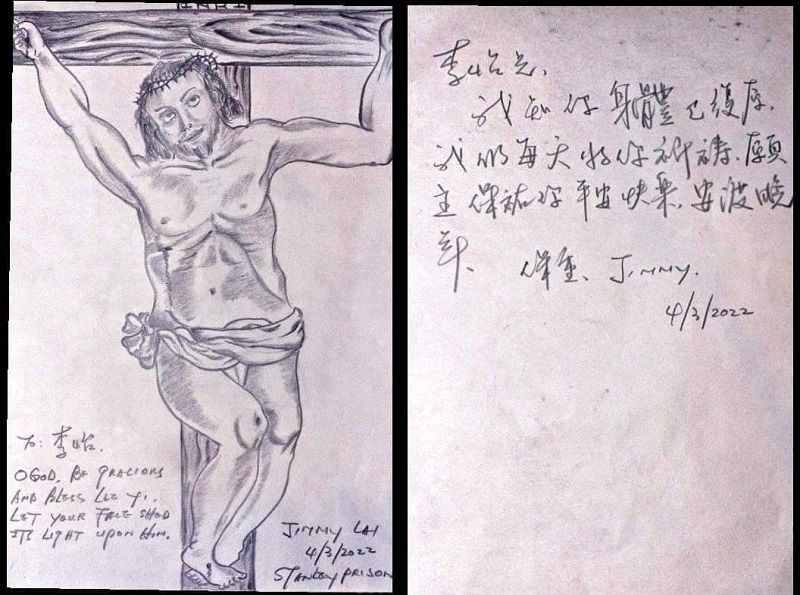 INRI
To: 李怡.
O GOD, BE GRACIOUS
AND BLESS LEE YI.
LET YOUR FACE SHED
ITS LIGHT UPON HIM.
JIMMY LAI
4/3/2022
STANLEY PRISON
李怡兄,
我知你身體已復
我仍每天為你祈禱、願
主保祐你平安快樂,安渡晚
年、 保重、Jimmy.
4/3/2022